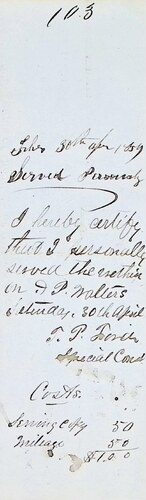 103
30th apr 1859
Served Personaly
I hereby certify
that I personally
served the within
on D P. Walters
Saturday, 30th April
T. P.
Special Cons
Costs.
Serving copy 50
Mileage 50
$1.00